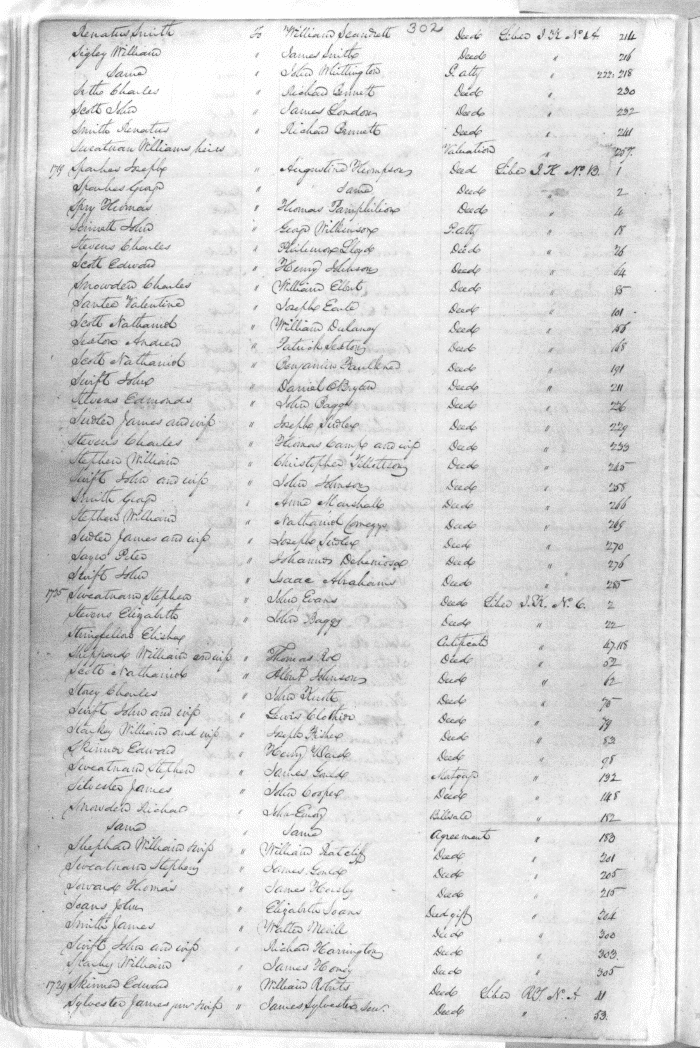 302
Renatus Smith To William Scandrett Deed Liber I.K. No. A 214
Sigley William " James Smith Deed " 216
Same " John Whittington P. atty " 222. 218
Charles " Richard Bennett Deed " 230
Scott John " James London Deed " 232
Smith Renatus " Richard Bennett Deed " 241
Sweatnam Williams heirs Valuation " 257.
Sparkes Joseph " Augustine Thompson Deed Liber I.K. No. B. 1
Sparkes George " Same Deed " 2
Spry Thomas " Thomas Pamphilion Deed " 4
Sinnett John " George Wilkinson P. atty " 18
Stevens Charles " Philemon Lloyd Deed " 26
Scott Edward " Henry Johnson Deed " 64
Snowden Charles " William Elbert Deed " 85
Santee Valentine " Joseph Earle Deed " 101
Scott Nathaniel " William Dulany Deed " 155
Seston Andrew " Patrick Seston Deed " 168
Scott Nathaniel " Benjamin Faulkner Deed " 191
Swift John " Daniel OBryan Deed " 211
Stevens Edmonds " John Baggs Deed " 226
Sudler James and wife " Joseph Sudler Deed " 229
Stevens Charles " Thomas Camp and wife Deed " 233
Stephen William " Christopher Tillottson Deed " 245
Swift John and wife " John Johnson Deed " 258
Smith George " Anne Marshall Deed " 266
Stephen William " Nathaniel Comegys Deed " 269
Sudler James and wife " Joseph Sudler Deed " 270
Sayer Peter " Johannes Debaniosa Deed " 276
Swift John " Isaac Abrahams Deed " 285
1725 Sweatnam Stephen " John Evans Deed Liber I.K. No. C. 2
Stevens Elizabeth " John Baggs Deed " 22
Stringfellow Elisha Certificate " 47.118
Sheppard William and wife " Thomas Roe Deed " 52
Scott Nathaniel " Albert Johnson Deed " 62
Stacy Charles " John Hustt Deed " 75
Swift John and wife " Lewis Clothier Deed " 79
Starkey William and wife " Joseph Fisher Deed " 83
Skinner Edward " Henry Ward Deed " 98
Sweatnam Stephen " James Gould Mortgage " 132
Silvester James " John Cooper Deed " 148
Snowden Richard " John Emory Billsale " 182
Same " Same Agreement " 183
Shephard William & wife " William Ratcliff Deed " 201
Sweatnam Stephen " James Gould Deed " 205
Seward Thomas " James Horsley Deed " 215
Soans John " Elizabeth Soans Deed gift " 264
Smith James " Walter Mevill Deed " 300
Swift John and wife " Richard Harrington Deed " 303
Starkey William " James Honey Deed " 305
1729 Skinner Edward " William Roberts Deed Liber R.T. No. A 41
Sylvester James junr & wife " James Sylvester senr. Deed " 53.